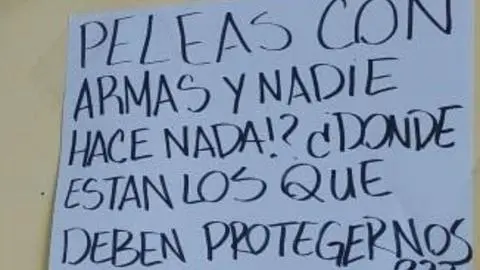 PELEAS CON
ARMAS Y NADIE
HACE NADA!? ¿DONDE
ESTAN LOS QUE
DEBEN PROTEGERNOS
???